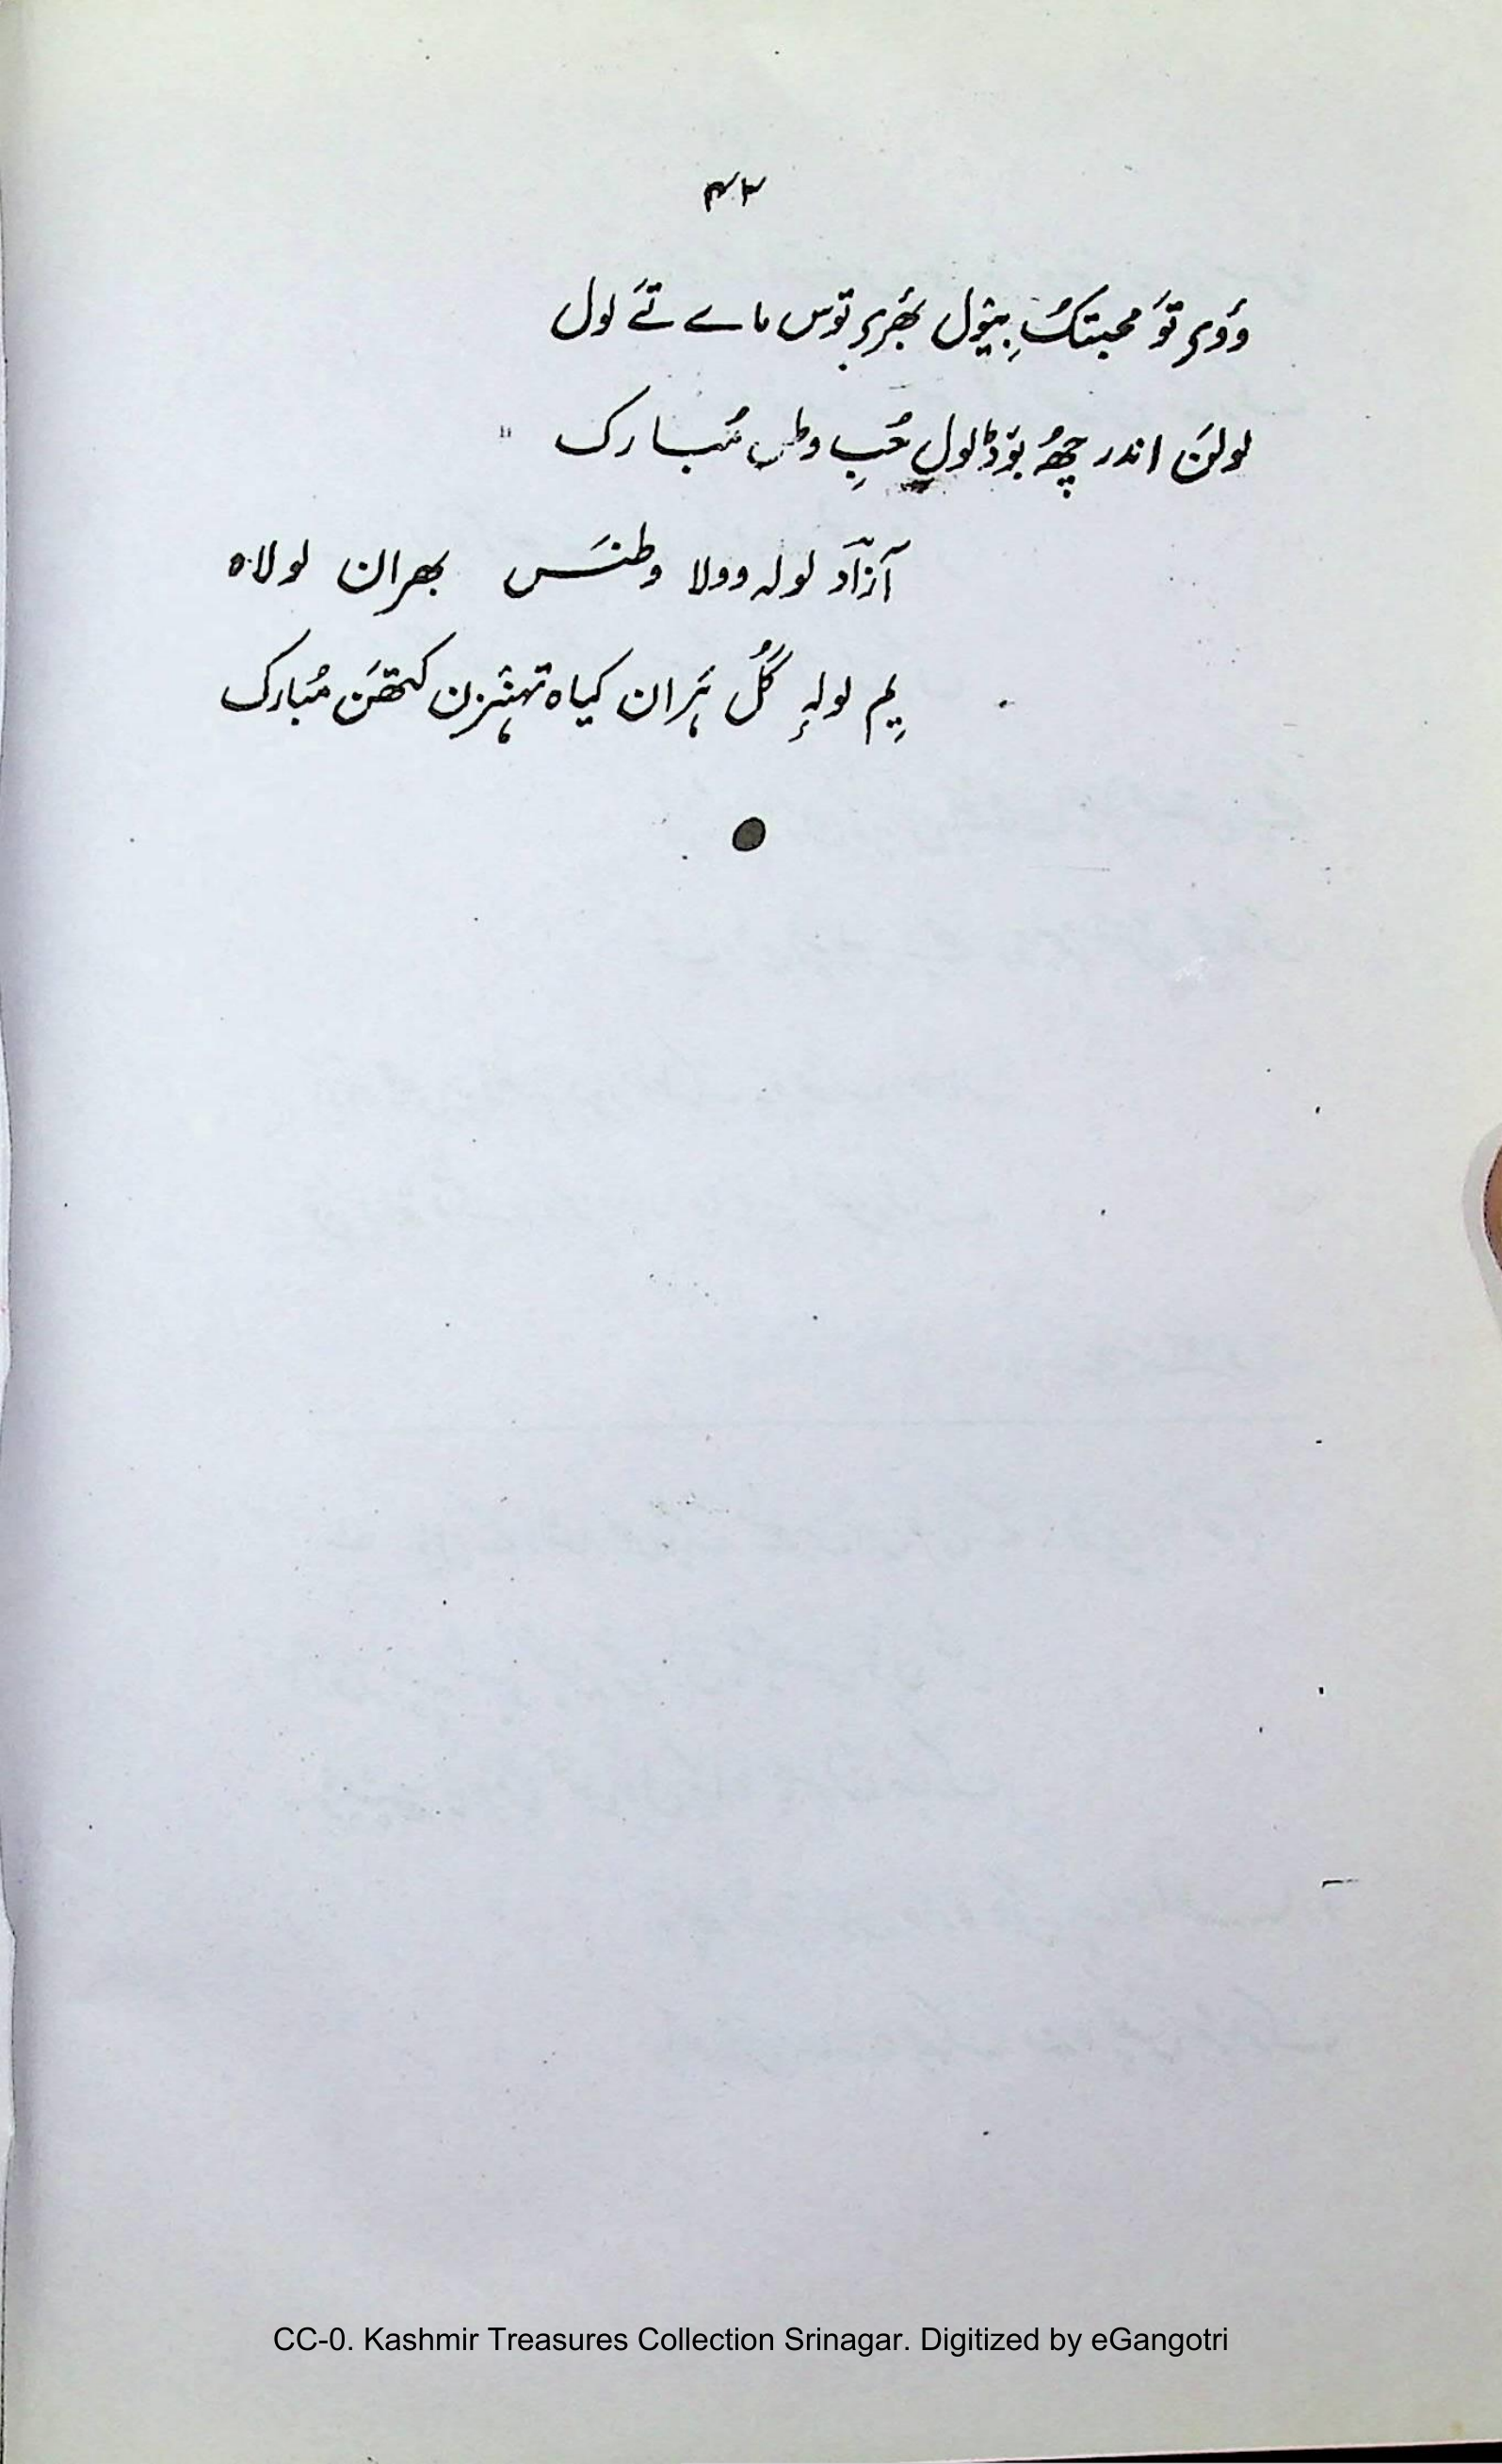 ۴۲
وَوۍ توَ محبتکُ بِیٛول بھٔرۍ توس مائے تےَ لول
لولَن اندر چھُ بوٚڈ لول حُبِ وطن مُبارک "
آزاد لولہ وولا وطنَس بھران لولاہ
یِم لولہٕ گُل ہَران کیاہ تہنٛزن کتھَن مُبارک
CC-0. Kashmir Treasures Collection Srinagar. Digitized by eGangotri